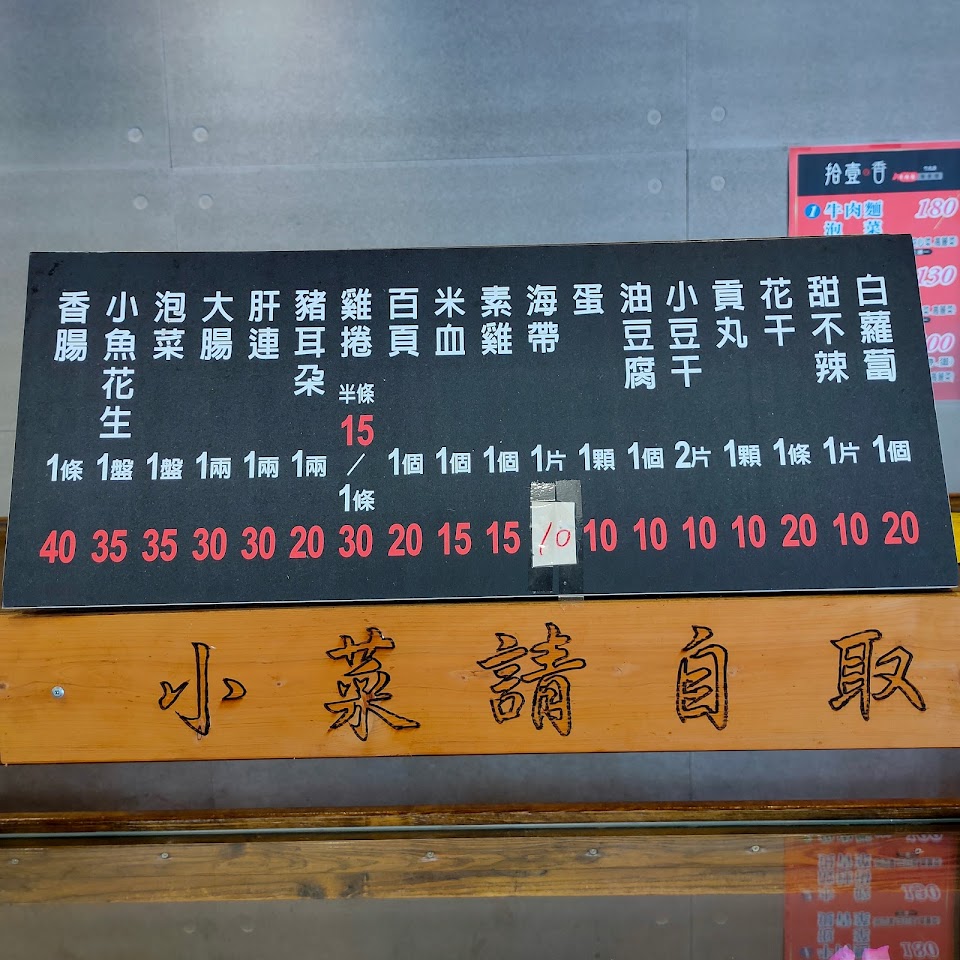 香腸 1條 40
小魚花生 1盤 35
泡菜 1盤 35
大腸 1兩 30
肝連 1兩 30
豬耳朵 1兩 20
雞捲 半條 15 / 1條 30
百頁 1個 20
米血 1個 15
素雞 1個 15
海帶 1片 10
蛋 1顆 10
油豆腐 1個 10
小豆干 2片 10
貢丸 1顆 10
花干 1條 20
甜不辣 1片 10
白蘿蔔 1個 20
小菜請自取
拾壹香
1 牛肉麵 180
泡菜
130